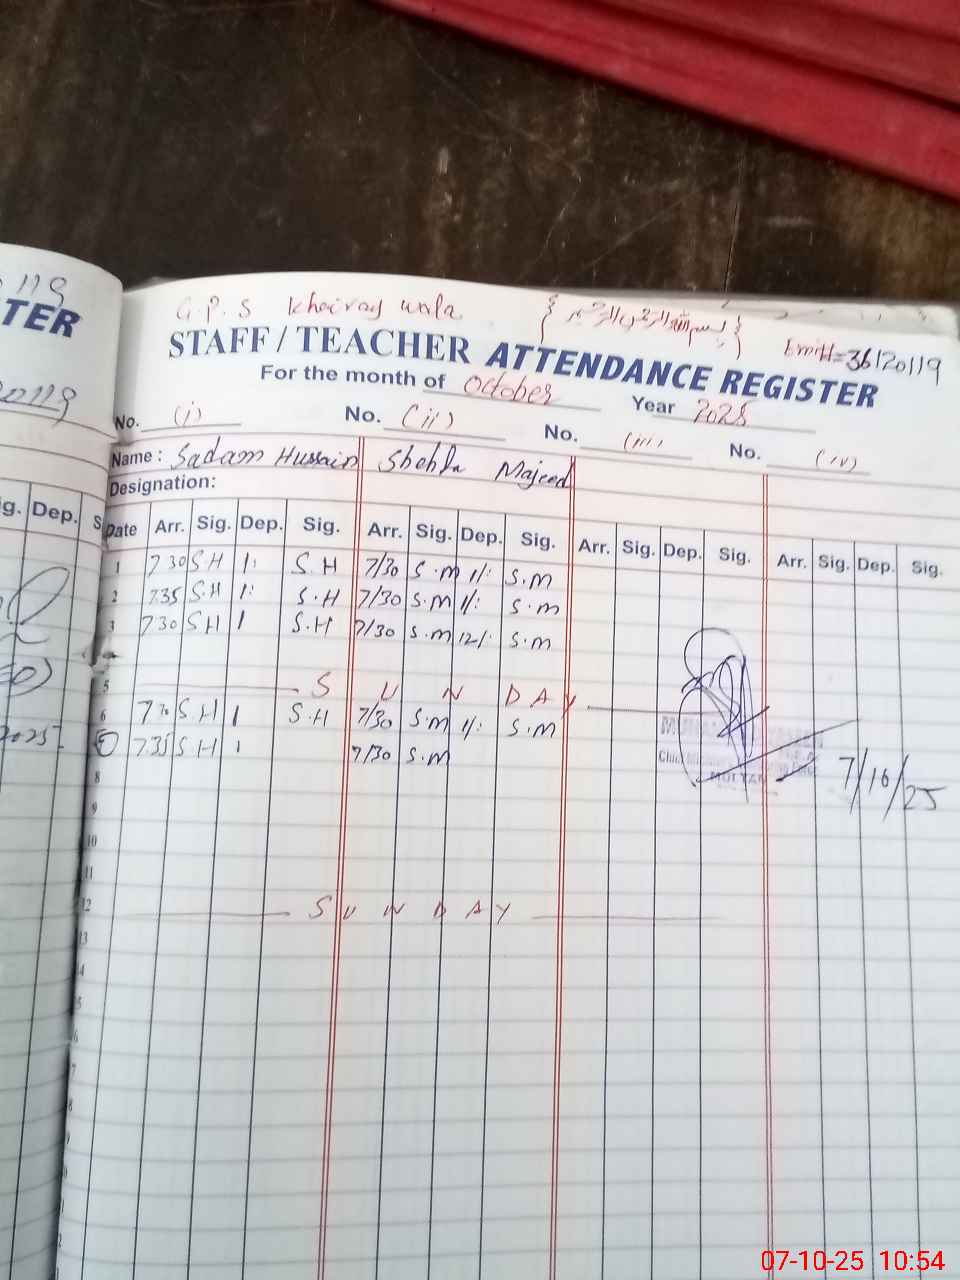 119
TER
20119
G.P.S Khairay wala {بسم اللہ الرحمن الرحیم} Emis#=36120119
STAFF / TEACHER ATTENDANCE REGISTER
For the month of October Year 2025
No. (i) No. (ii) No. (iii) No. (iv)
Name: Sadam Hussain Shehla Majeed
Designation:
ig. Dep. S
Date Arr. Sig. Dep. Sig. Arr. Sig. Dep. Sig. Arr. Sig. Dep. Sig. Arr. Sig. Dep. Sig.
1 7 30 S.H 1: S.H 7/30 S.M 1/: S.M
2 7.35 S.H 1: S.H 7/30 S.M 1/: S.M
3 7 30 S H 1 S.H 7/30 S.M 12/: S.M
5 S U N D A Y
6 7 30 S.H 1 S.H 7/30 S.M 1/: S.M
7.35 S H 1 7/30 S.M
MULTAN
7/10/25
8
9
10
11
12 S U N D A Y
13
07-10-25 10:54